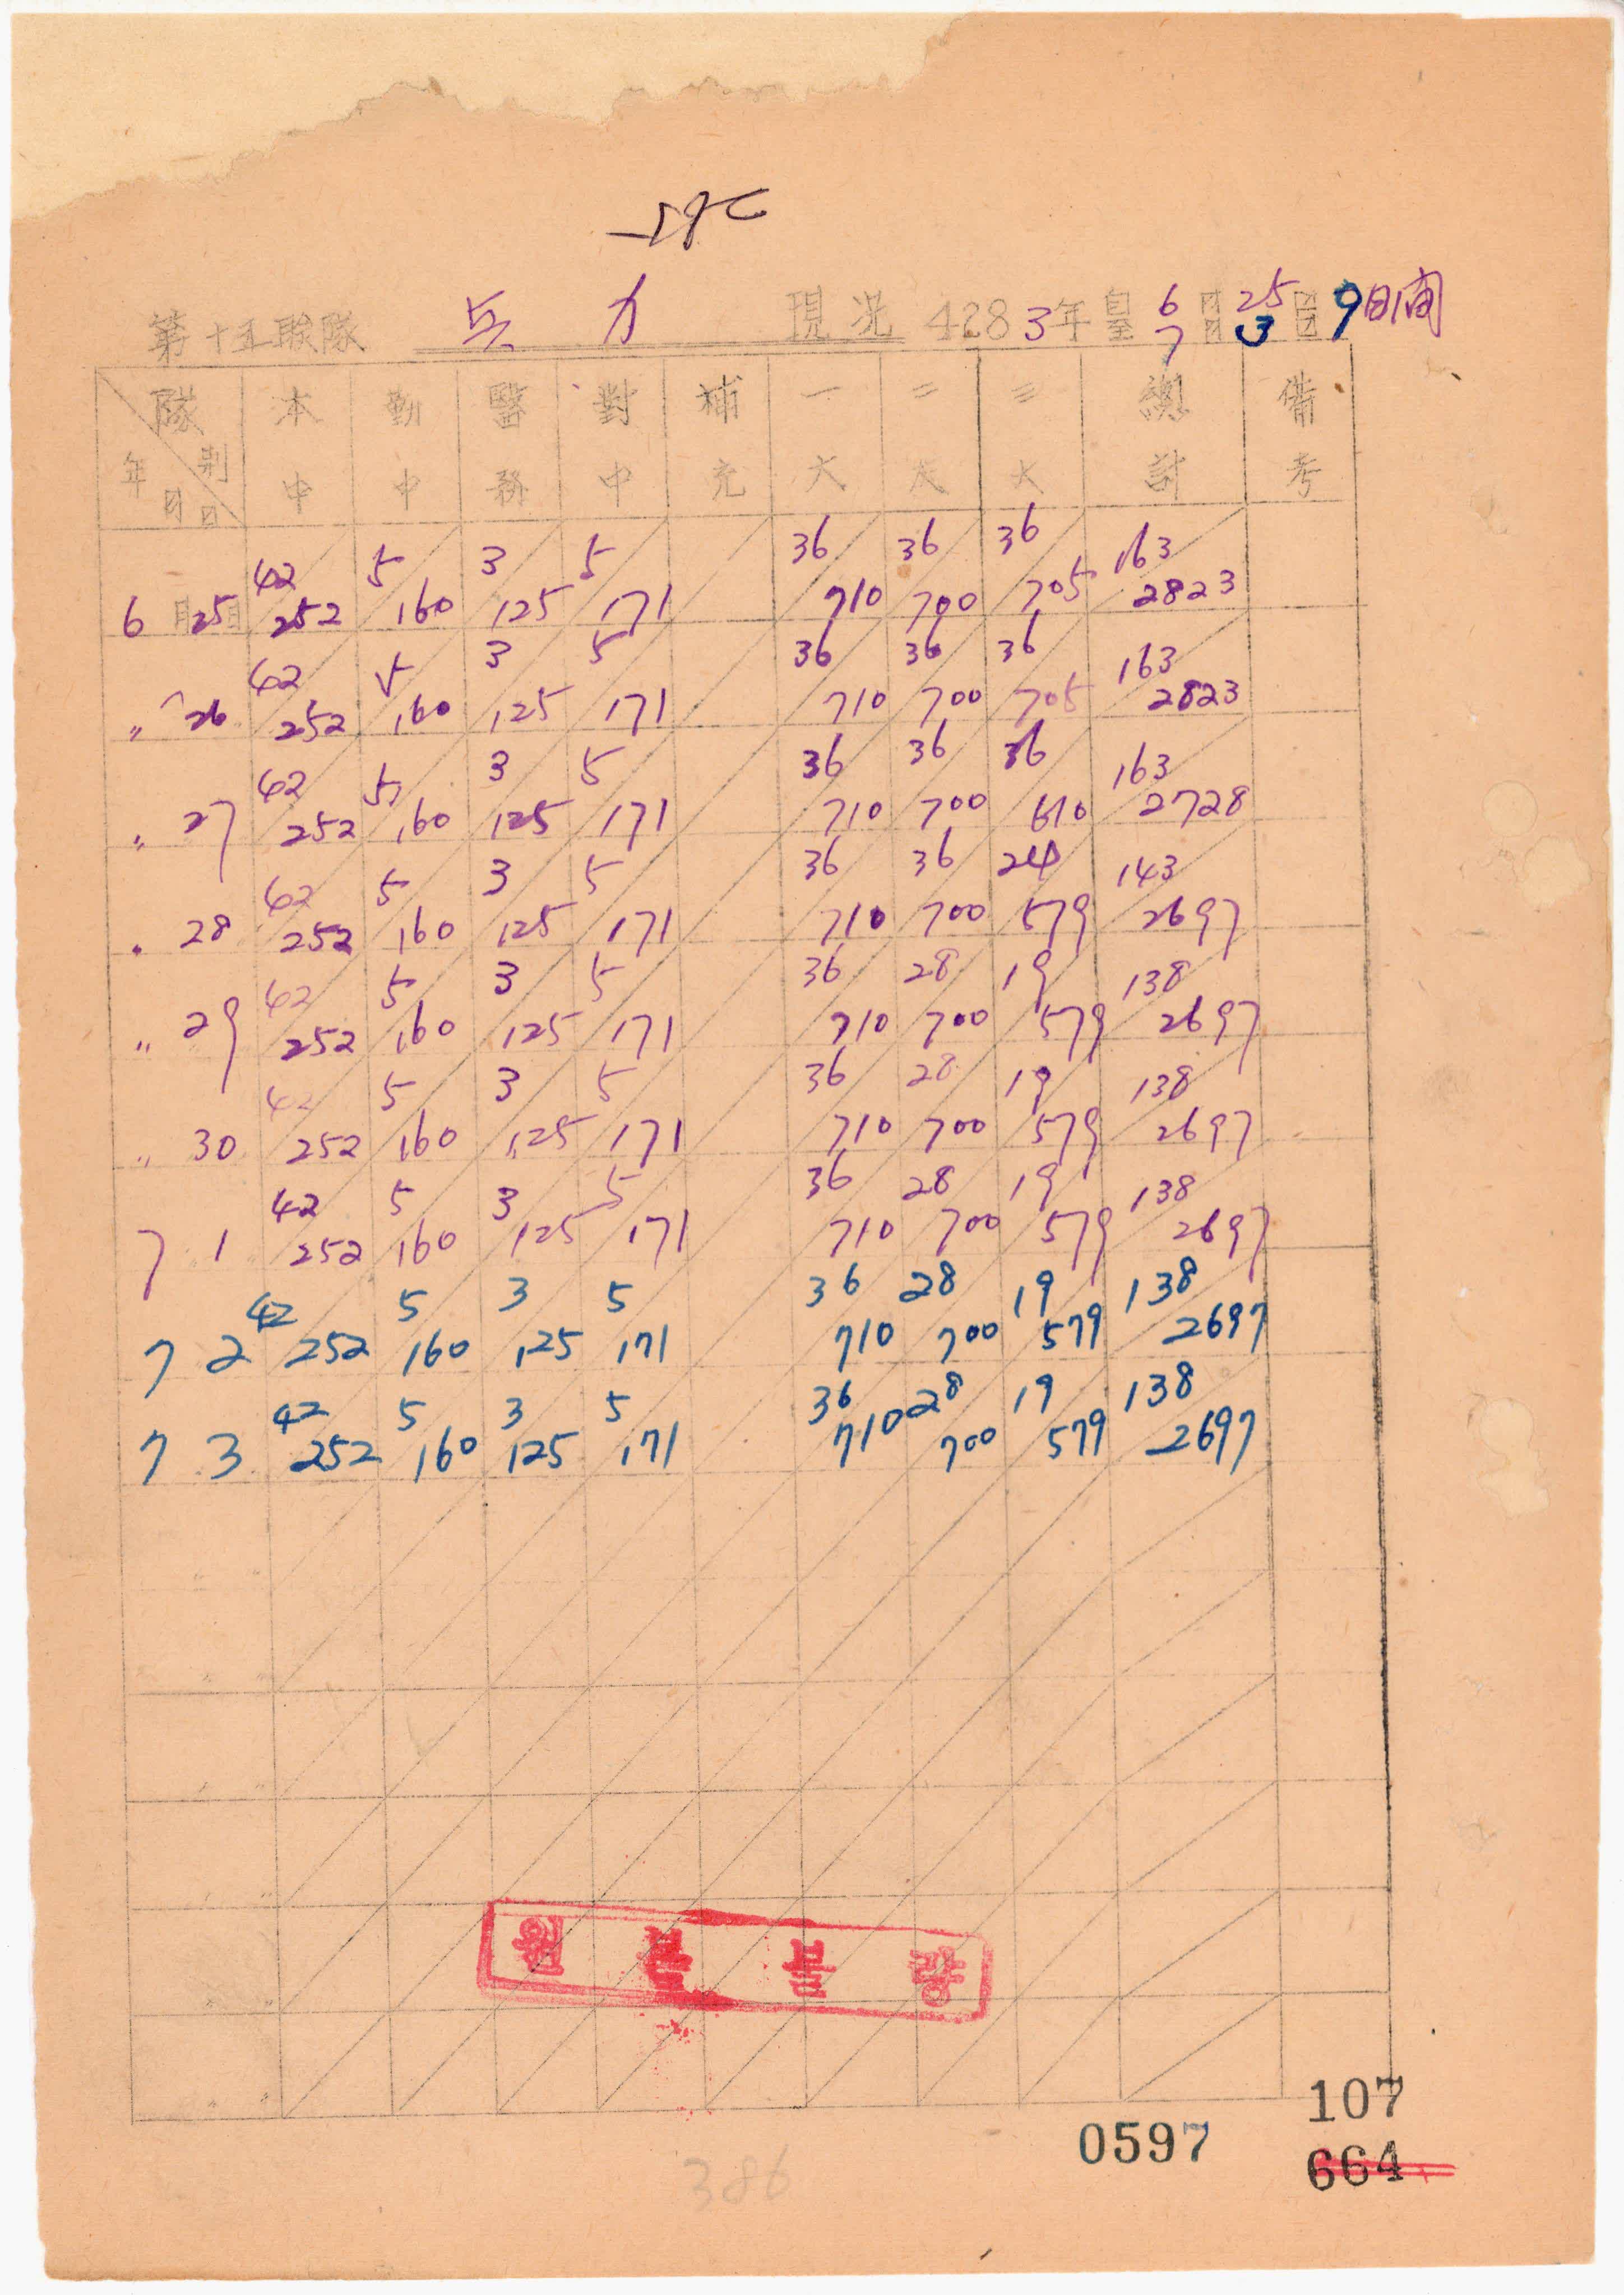 第十五聯隊 兵力 現況 4283年 自 6月 25日 9日间
至 7月 3日
隊別 年月日 本中 勤中 醫務 對中 補充 一大 二大 三大 總計 備考
42 5 3 5 36 36 36 163
6月25日 252 160 125 171 710 700 705 2823
42 5 3 5 36 36 36 163
〃 26 252 160 125 171 710 700 705 2823
42 5 3 5 36 36 36 163
〃 27 252 160 125 171 710 700 610 2728
42 5 3 5 36 36 24 143
〃 28 252 160 125 171 710 700 579 2697
42 5 3 5 36 28 19 138
〃 29 252 160 125 171 710 700 579 2697
42 5 3 5 36 28 19 138
〃 30 252 160 125 171 710 700 579 2697
42 5 3 5 36 28 19 138
7 1 252 160 125 171 710 700 579 2697
42 5 3 5 36 28 19 138
7 2 252 160 125 171 710 700 579 2697
42 5 3 5 36 28 19 138
7 3 252 160 125 171 710 700 579 2697
원본
107
0597
664
386